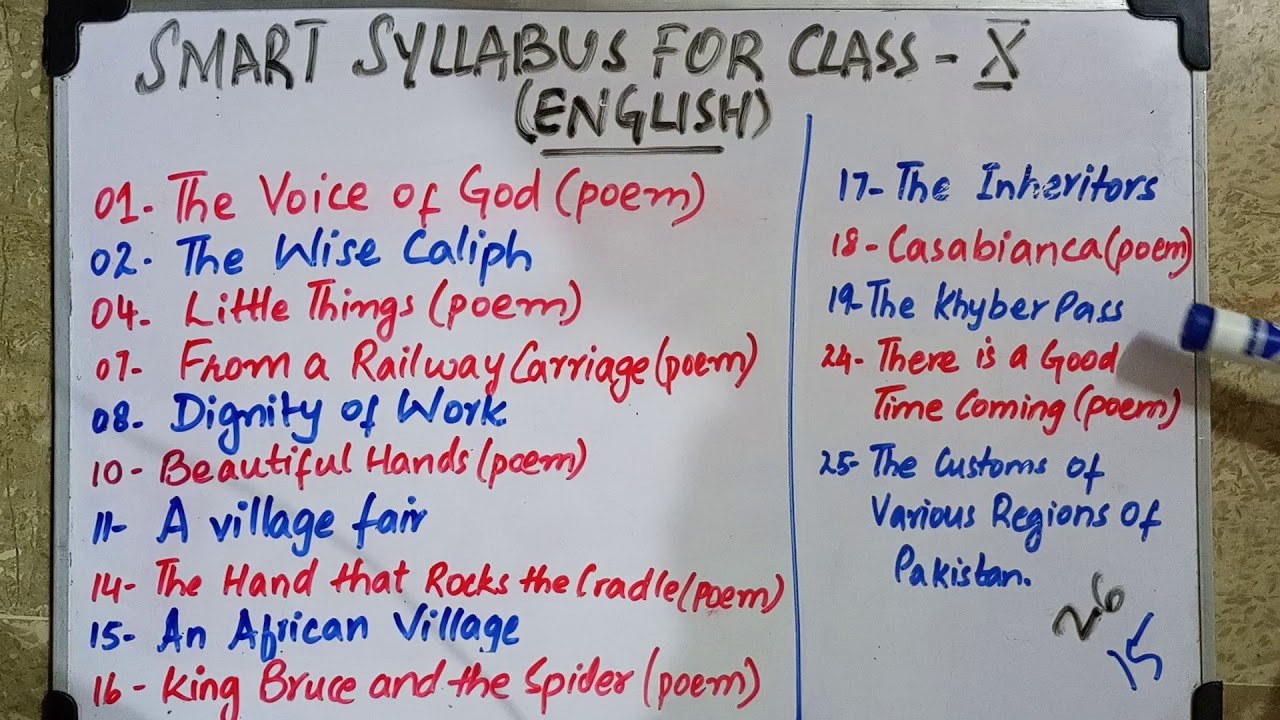 SMART SYLLABUS FOR CLASS - X
(ENGLISH)
01- The Voice of God (poem)
02- The Wise Caliph
04- Little Things (poem)
07- From a Railway Carriage (poem)
08- Dignity of Work
10- Beautiful Hands (poem)
11- A village fair
14- The Hand that Rocks the Cradle (poem)
15- An African Village
16- King Bruce and the Spider (poem)
17- The Inheritors
18- Casabianca (poem)
19- The Khyber Pass
24- There is a Good
Time Coming (poem)
25- The Customs of
Various Regions of
Pakistan.
26
15